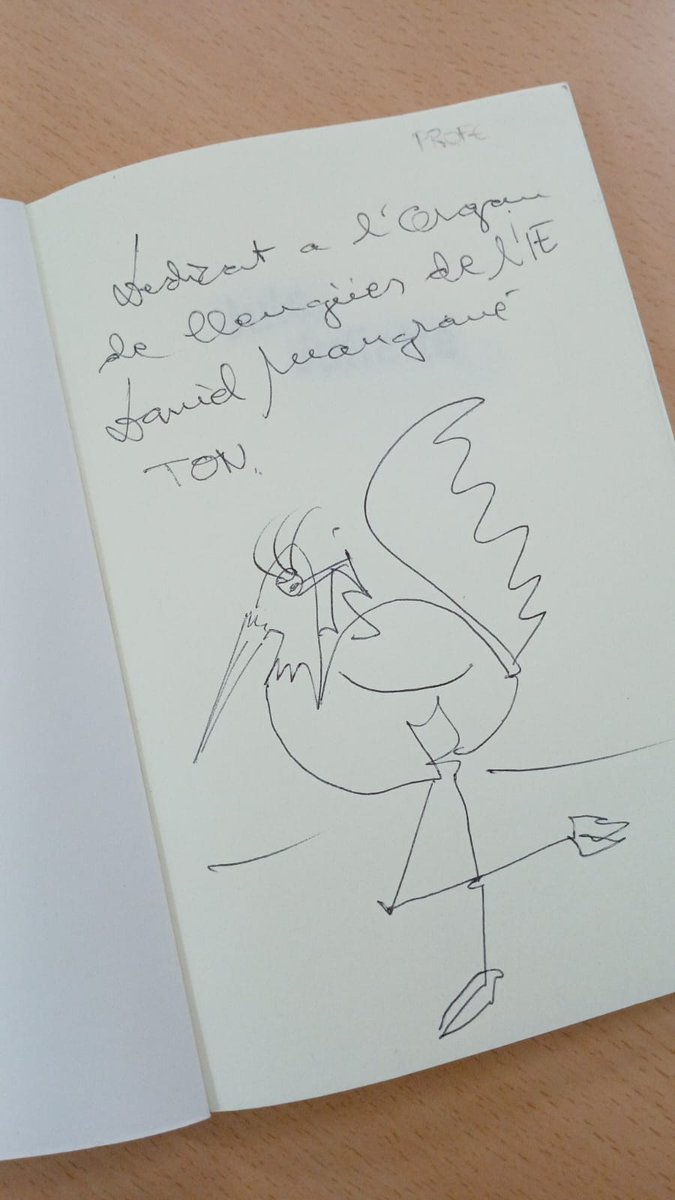 PROFE
Dedicat a l'Organ
de llengües de l'IE
David Mangrané
TON.